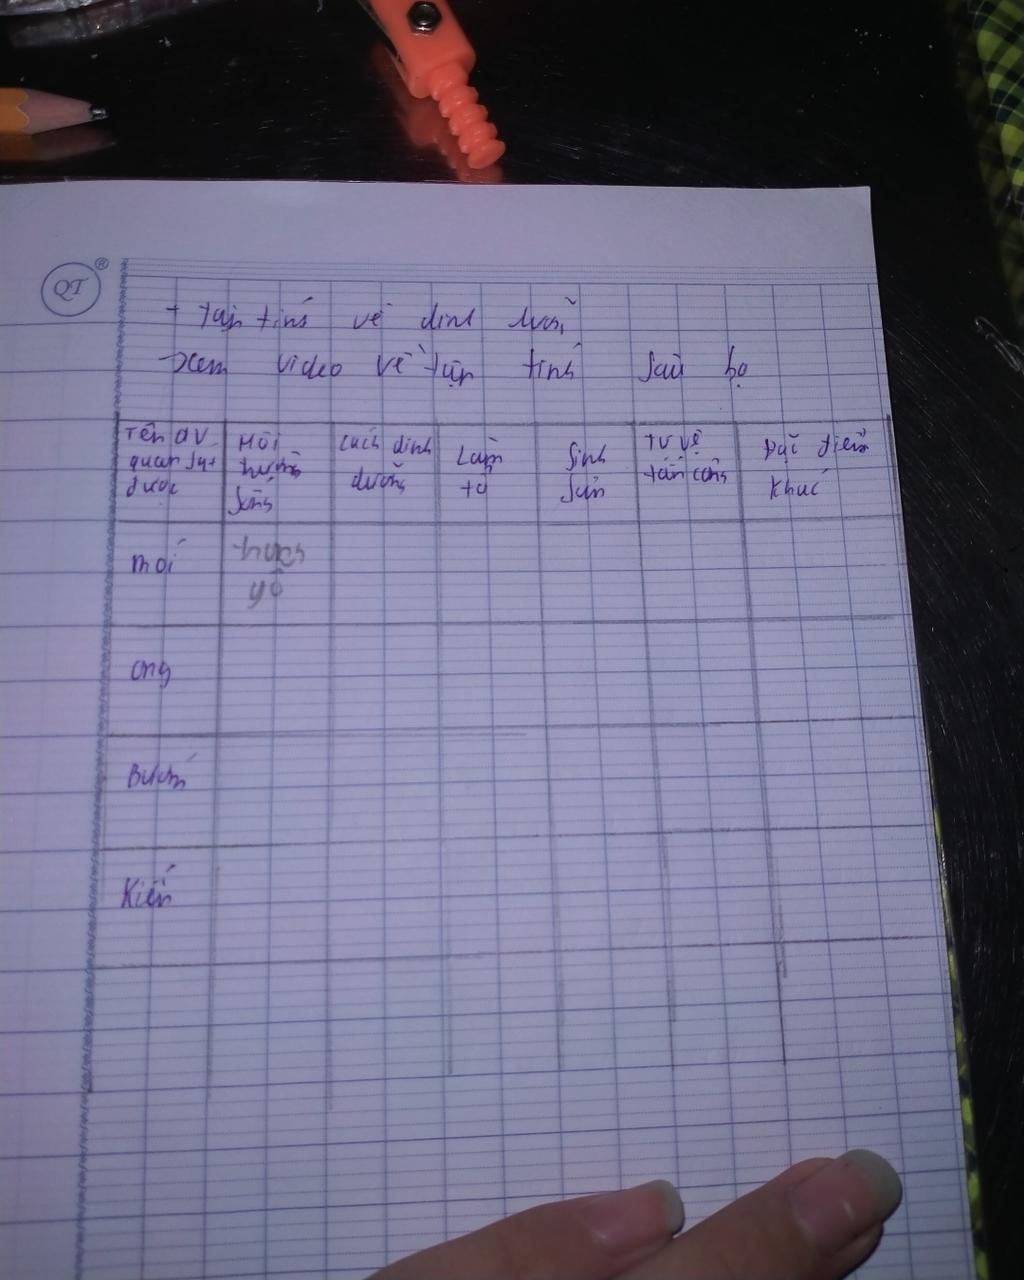 QT ®
+ tập tính về dinh dưỡng
xem video về tập tính sâu bọ
Tên ĐV quan sát được
Môi trường sống
Cách dinh dưỡng
Làm tổ
Sinh sản
Tự vệ tấn công
Đặc điểm khác
mối
ong
Bướm
Kiến